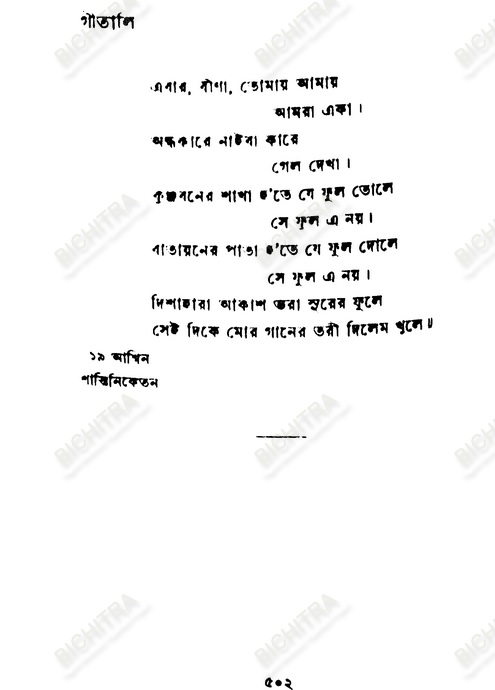 গীতালি
এবার, বীণা, তোমায় আমায়
আমরা একা।
অন্ধকারে নাইবা কারে
গেল দেখা।
কুঞ্জবনের শাখা হ'তে যে ফুল তোলে
সে ফুল এ নয়।
বাতায়নের পাতা হ'তে যে ফুল দোলে
সে ফুল এ নয়।
দিশাহারা আকাশ ভরা সুরের ফুলে
সেই দিকে মোর গানের তরী দিলেম খুলে॥
১৯ আশ্বিন
শান্তিনিকেতন
৫০২
BICHITRA